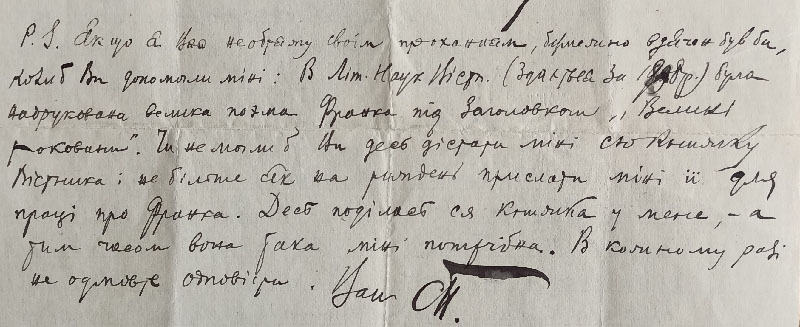 P. S. Як що я Вас не ображу своїм проханням, безмежно вдячен був би,
колиб Ви допомогли міні: В Літ. Наук. Вістн. (Здається за р.) була
надрукована велика поэма Франка під заголовком „Великі
роковини". Чи не моглиб Ви десь дістати міні сю книжку
Вістника і не більше як на тиждень прислати міні її для
праці про Франка. Десь поділась ся книжка у мене, – а
тим часом вона така міні потрібна. В кожному разі
не одмовте одповісти. Ваш СП.